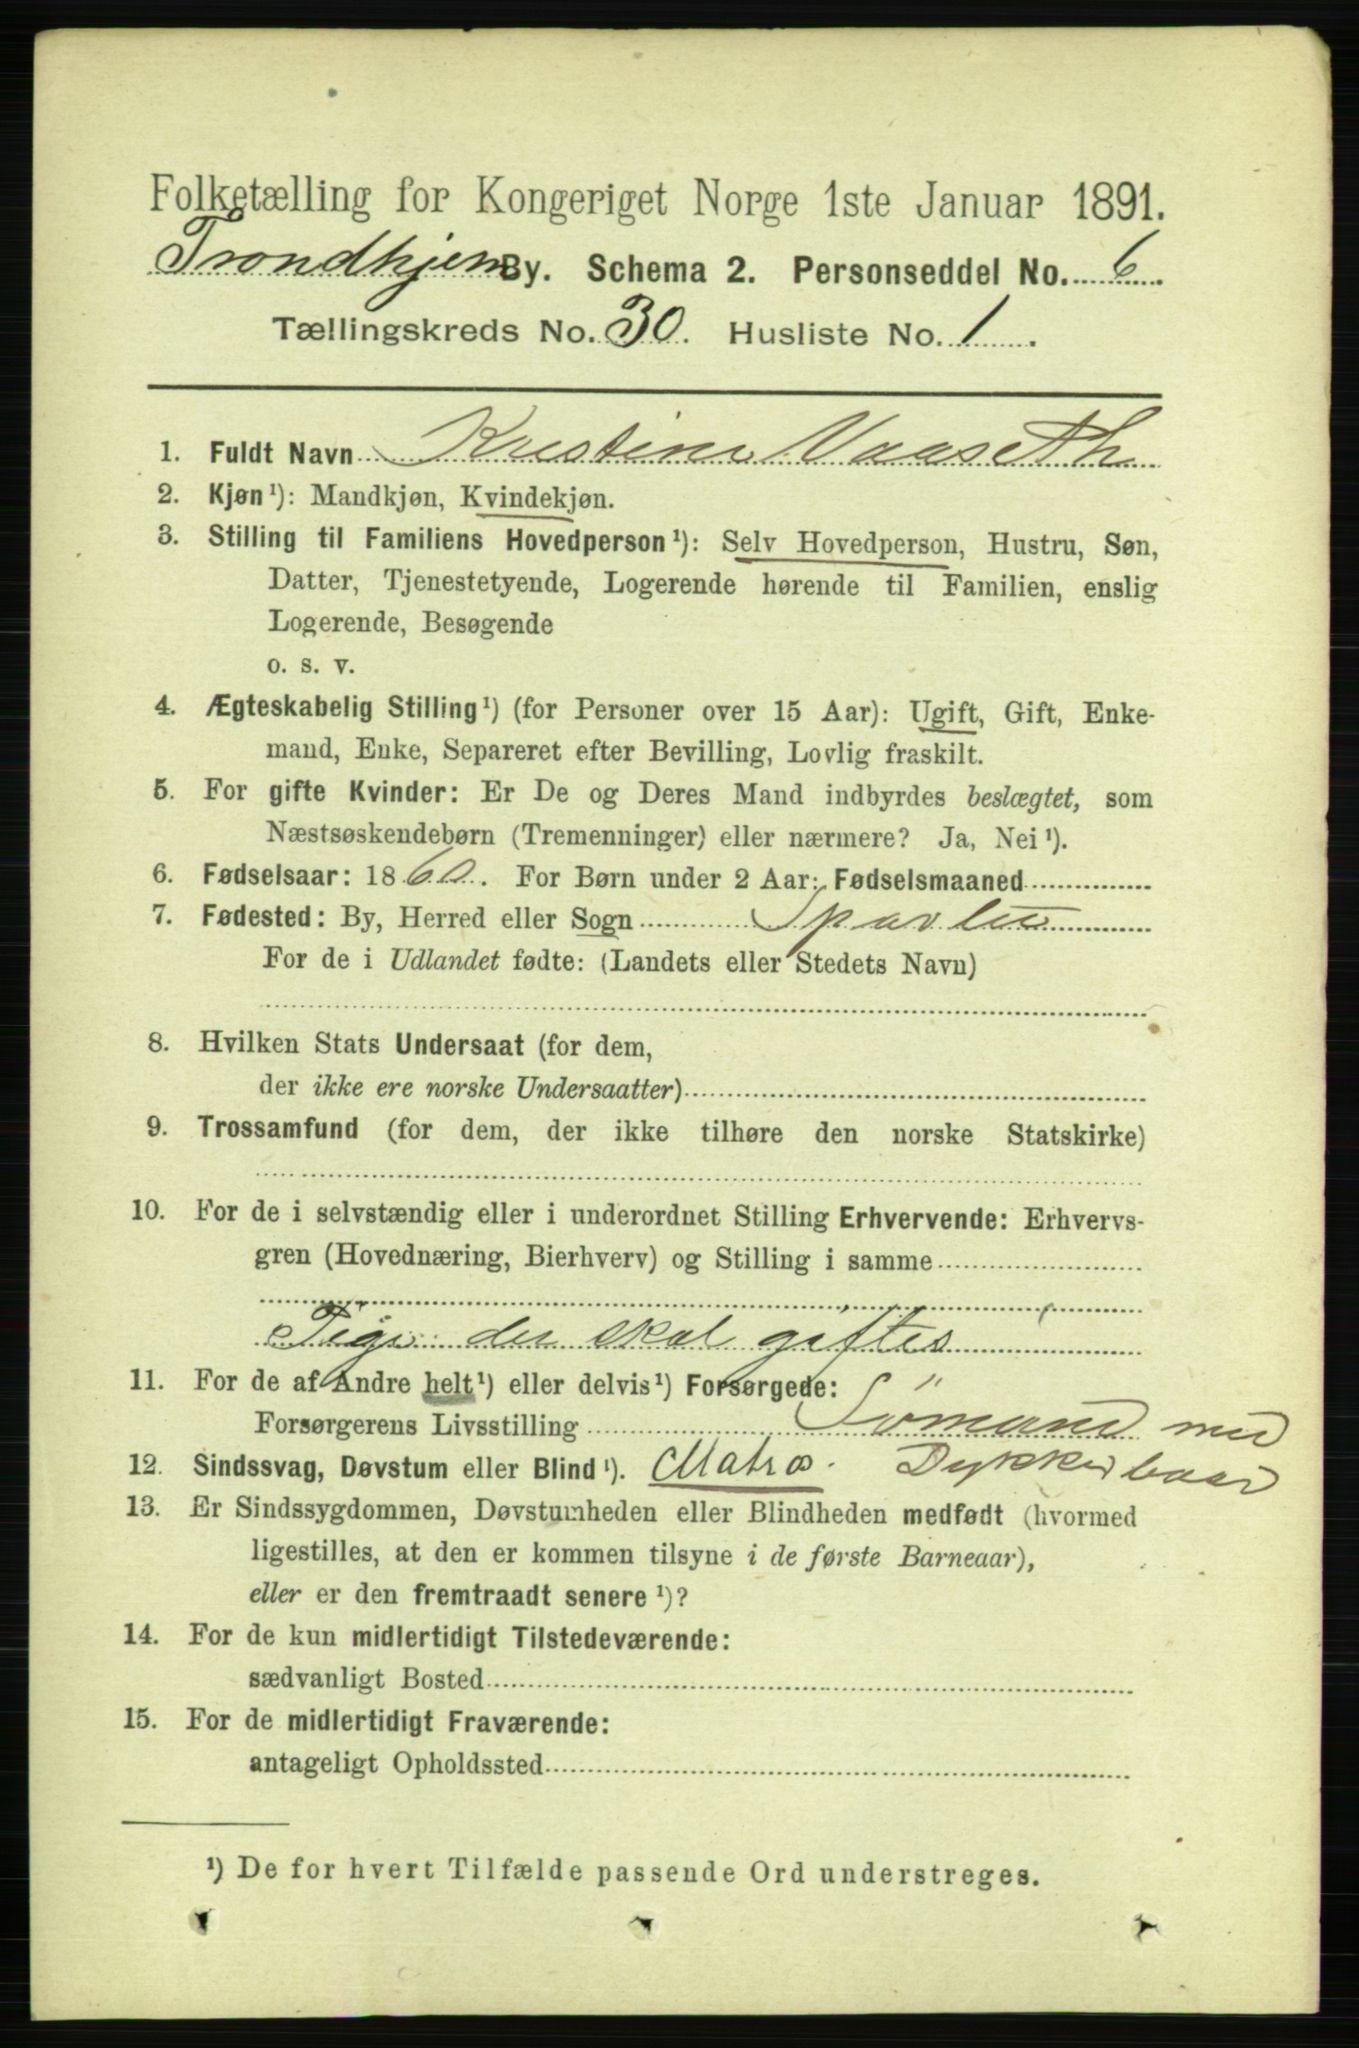 Folketælling for Kongeriget Norge 1ste Januar 1891.
Trondhjem By. Schema 2. Personseddel No. 6.
Tællingskreds No. 30. Husliste No. 1.
1. Fuldt Navn Kristine Vaaseth
2. Kjøn¹): Mandkjøn, Kvindekjøn.
3. Stilling til Familiens Hovedperson¹): Selv Hovedperson, Hustru, Søn,
Datter, Tjenestetyende, Logerende hørende til Familien, enslig
Logerende, Besøgende
o. s. v.
4. Ægteskabelig Stilling¹) (for Personer over 15 Aar): Ugift, Gift, Enke-
mand, Enke, Separeret efter Bevilling, Lovlig fraskilt.
5. For gifte Kvinder: Er De og Deres Mand indbyrdes beslægtet, som
Næstsøskendebørn (Tremenninger) eller nærmere? Ja, Nei¹).
6. Fødselsaar: 1860. For Børn under 2 Aar: Fødselsmaaned
7. Fødested: By, Herred eller Sogn Sparbu
For de i Udlandet fødte: (Landets eller Stedets Navn)
8. Hvilken Stats Undersaat (for dem,
der ikke ere norske Undersaatter)
9. Trossamfund (for dem, der ikke tilhøre den norske Statskirke)
10. For de i selvstændig eller i underordnet Stilling Erhvervende: Erhvervs-
gren (Hovednæring, Bierhverv) og Stilling i samme
Pige der skal giftes
11. For de af Andre helt¹) eller delvis¹) Forsørgede:
Forsørgerens Livsstilling Sömand med
12. Sindssvag, Døvstum eller Blind¹). Matros. Dykker baad
13. Er Sindssygdommen, Døvstumheden eller Blindheden medfødt (hvormed
ligestilles, at den er kommen tilsyne i de første Barneaar),
eller er den fremtraadt senere¹)?
14. For de kun midlertidigt Tilstedeværende:
sædvanligt Bosted
15. For de midlertidigt Fraværende:
antageligt Opholdssted
¹) De for hvert Tilfælde passende Ord understreges.